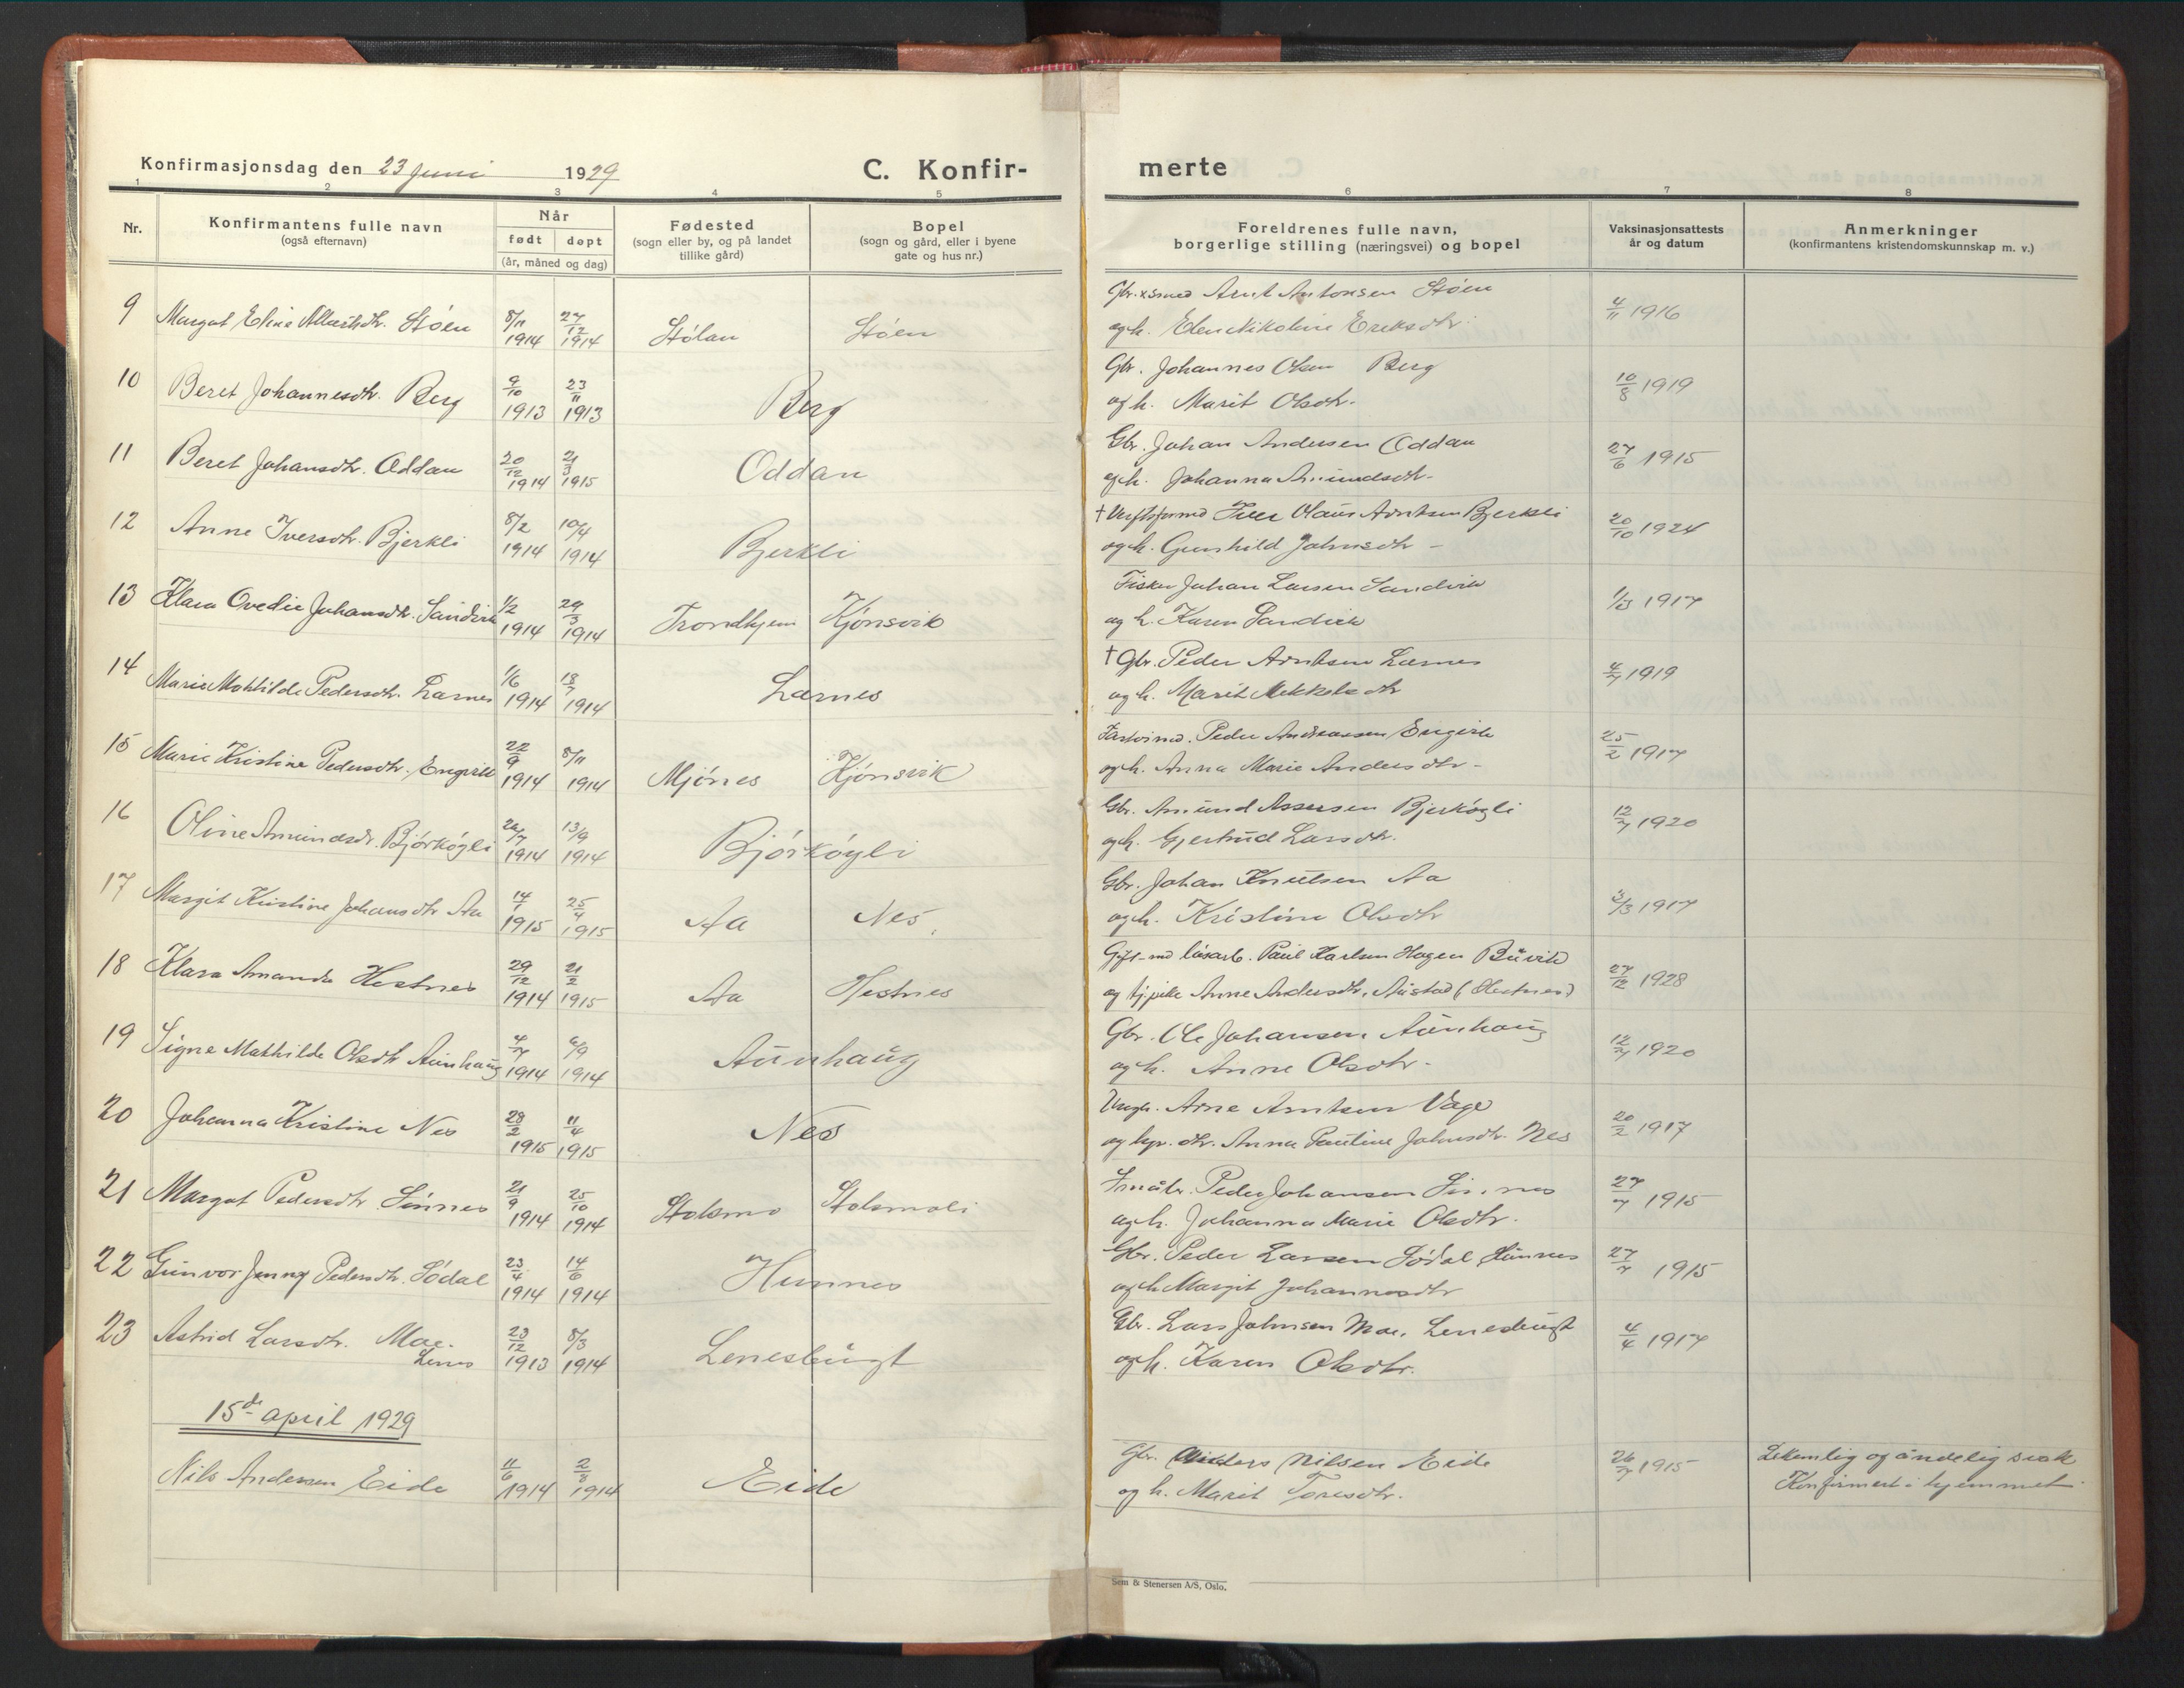 Konfirmasjonsdag den 23 juni 1929
C. Konfir-
merte
1 2 3 4 5 6 7 8
Nr.
Konfirmantens fulle navn
(også efternavn)
Når
født døpt
(år, måned og dag)
Fødested
(sogn eller by, og på landet
tillike gård)
Bopel
(sogn og gård, eller i byene
gate og hus nr.)
Foreldrenes fulle navn,
borgerlige stilling (næringsvei) og bopel
Vaksinasjonsattests
år og datum
Anmerkninger
(konfirmantens kristendomskunnskap m. v.)
9 Margot Eline Støen 8/11 1914 27/12 1914 Stølan Støen
Arnt Antonsen Støen
og h. Elen Nikoline Eriksdtr. 4/11 1916
10 Beret Johannesdtr. Berg 9/10 1913 23/11 1913 Berg
Gbr. Johannes Olsen Berg
og h. Marit Olsdtr. 10/8 1919
11 Beret Johansdtr. Oddan 20/12 1914 21/3 1915 Oddan
Gbr. Johan Andersen Oddan
og h. Johanna Amundsdtr. 27/6 1915
12 Anne Iversdtr. Bjerkli 8/2 1914 10/4 1914 Bjerkli
† Iver Olaus Arntsen Bjerkli
og h. Gunhild Johnsdtr - 20/10 1924
13 Klara Ovedie Johansdtr. Sandvik 1/2 1914 29/3 1914 Trondhjem Kjönsvik
Fisker Johan Larsen Sandvik
og h. Karen Sandvik 1917
14 Marie Mathilde Pedersdtr. Larnes 1/6 1914 13/7 1914 Larnes
† Gbr. Peder Arntsen Larnes
og h. Marit Mikkelsdtr 4/7 1919
15 Marie Kristine Pedersdtr. Engvik 22/9 1914 8/11 1914 Mjönes Kjönsvik
Peder Andreassen Engvik
og h. Anna Marie Andersdtr - 25/2 1917
16 Oline Amundsdr. Björköyli 26/7 1914 13/9 1914 Björköyli
Gbr. Amund Assersen Bjerköyli
og h. Gjertrud Larsdtr. 12/7 1920
17 Margit Kristine Johansdtr Aa 14/1 1915 25/4 1915 Aa Nes.
Gbr. Johan Knutsen Aa
og h. Kristine Olsdtr 3/3 1917
18 Klara Amanda Hestnes 29/12 1914 21/2 1915 Aa Hestnes
Gift md løsarb. Paul Karlsen Hagen Buvik
og Anne Andersdtr. Austad (Hestnes) 27/12 1928
19 Signe Mathilde Olsdtr Aunhaug 4/7 1914 6/9 1914 Aunhaug
Gbr. Ole Johansen Aunhaug
og h. Anne Olsdtr - 12/7 1920
20 Johanna Kristine Nes 28/2 1915 11/4 1915 Nes
Ungk. Arne Arntsen Vage
og Anna Pauline Johnsdtr. Nes 20/2 1917
21 Margot Pedersdtr Sinnes 21/9 1914 25/10 1914 Stolsmo Stolsmoli
Småbr. Peder Johansen Sinnes
og h. Johanna Marie Olsdtr. 27/7 1915
22 Gunvor Jenny Pedersdtr. Södal 23/4 1914 14/6 1914 Hunnes
Gbr. Peder Larsen Södal Hunnes
og h Margit Johannesdtr 27/7 1915
23 Astrid Larsdtr. Moe. 23/12 1913 8/3 1914 Lenesbugt
Lenes
Gbr. Lars Johnsen Moe, Lenesbugt
og h. Karen Olsdtr. 4/4 1917
15de april 1929
Nils Andersen Eide 11/6 1914 2/8 1914 Eide
Gbr. Anders Nilsen Eide
og h. Marit Toresdtr. 26/7 1915
Lekemlig og åndelig svak
Konfirmert i hjemmet
Sem & Stenersen A/S, Oslo.